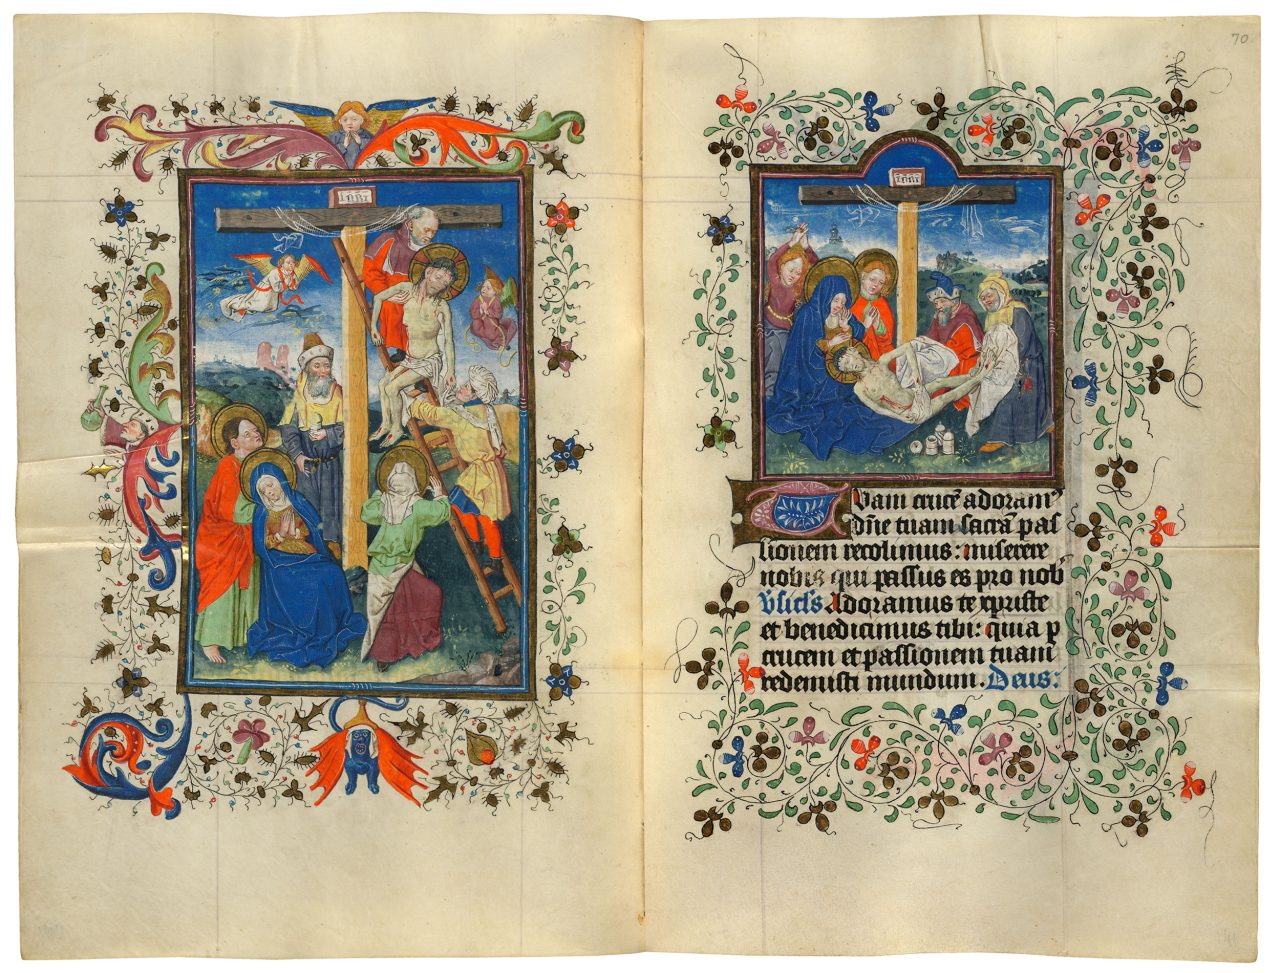 INRI
70
INRI
Quam cruce adoram9
dne tuam sacra pas
sionem recolimus : miserere
nobis qui passus es pro nob
Vsicls Adoramus te xpriste
et benedicimus tibi : quia p
crucem et passionem tuam
redemisti mundum . Deus :